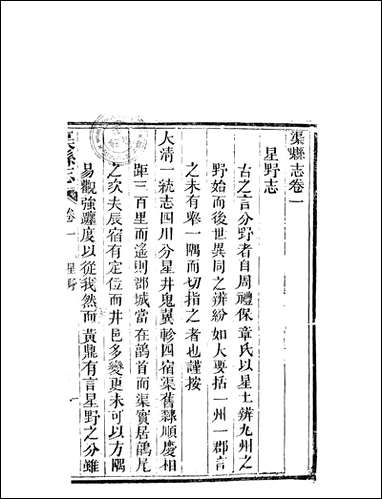 渠縣志卷一
星野志
古之言分野者自周禮保章氏以星土辨九州之
野始而後世異同之辨紛如大要括一州一郡言
之未有舉一隅而切指之者也謹按
大清一統志四川分星井鬼翼軫四宿渠舊隸順慶相
距三百里而遙則郡城當在鶉首而渠實居鶉尾
之次夫辰宿有定位而井邑多變更未可以方隅
易觀強躔度以從我然而黃鼎有言星野之分雖
渠縣志
卷一
星野